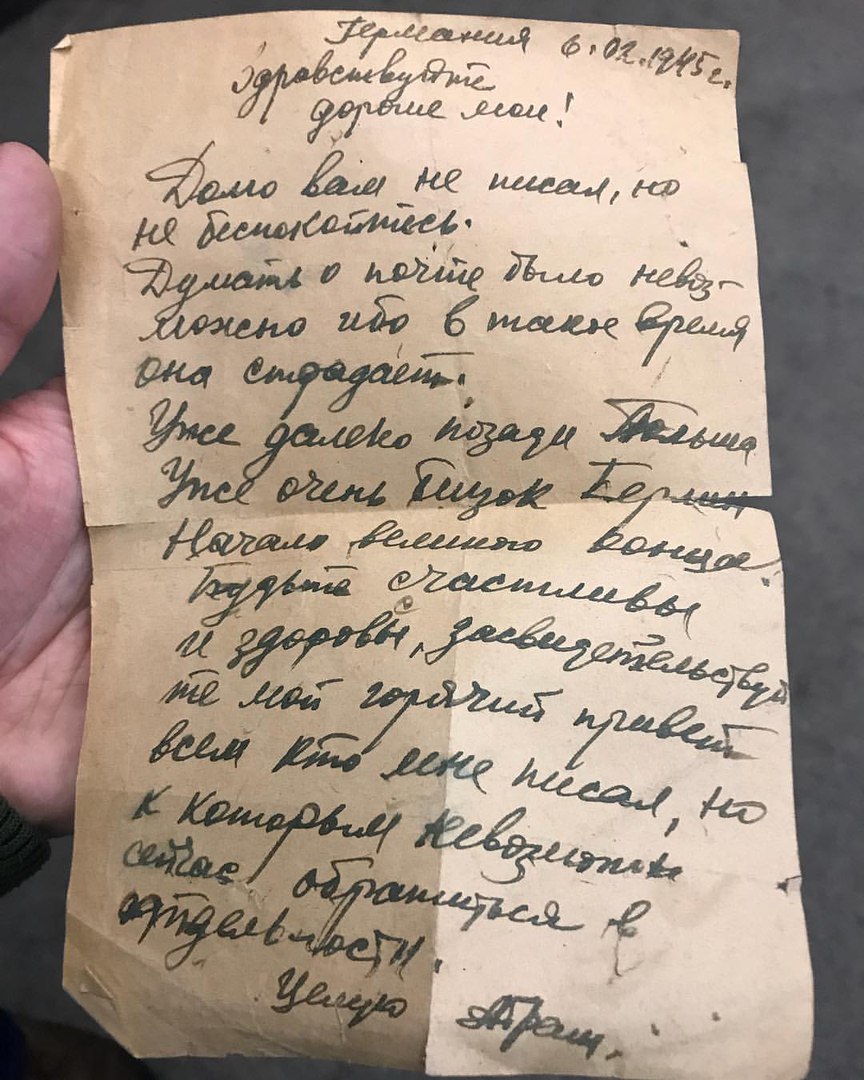 Германия 6.02.1945г.
Здравствуйте
дорогие мои!
Долго вам не писал, но
не беспокойтесь.
Думать о почте было невоз-
можно ибо в такое время
она страдает.
Уже далеко позади Польша
Уже очень близок Берлин
Начало великого конца.
Будьте счастливы
и здоровы, засвидетельствуй
те мой горячий привет
всем кто мне писал, но
к которым невозможно
сейчас обратиться в
отдельности.
Целую
Абраш.